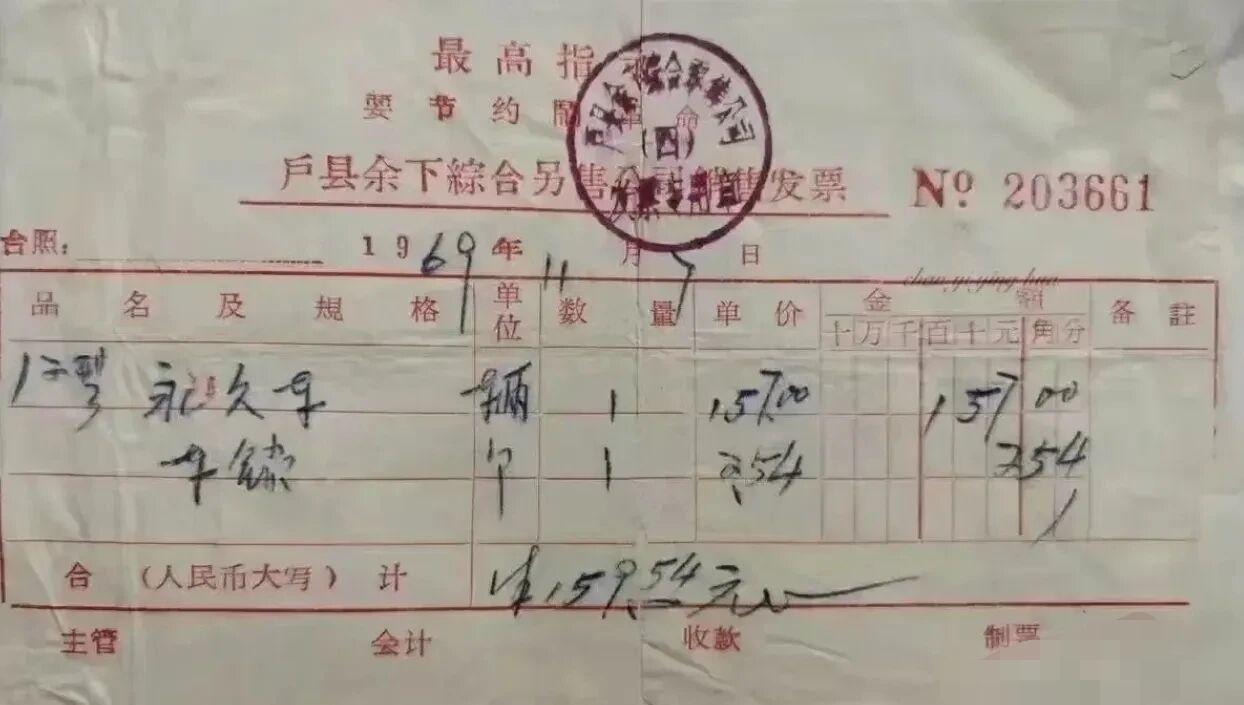 最高指示
要节约闹革命
户县余下綜合另售公司銷售发票 № 203661
户县余下綜合零售公司
(四)
发票专用章
台照： 1969年11月7日
chan.yi.ying.hua
品名及規格 单位 数量 单价 金額 备註
十万千百十元角分
永久车 辆 1 157.00 157 00
车锁 个 1 2.54 2 54
合（人民币大写）计 159.54元
主管 会计 收款 制票